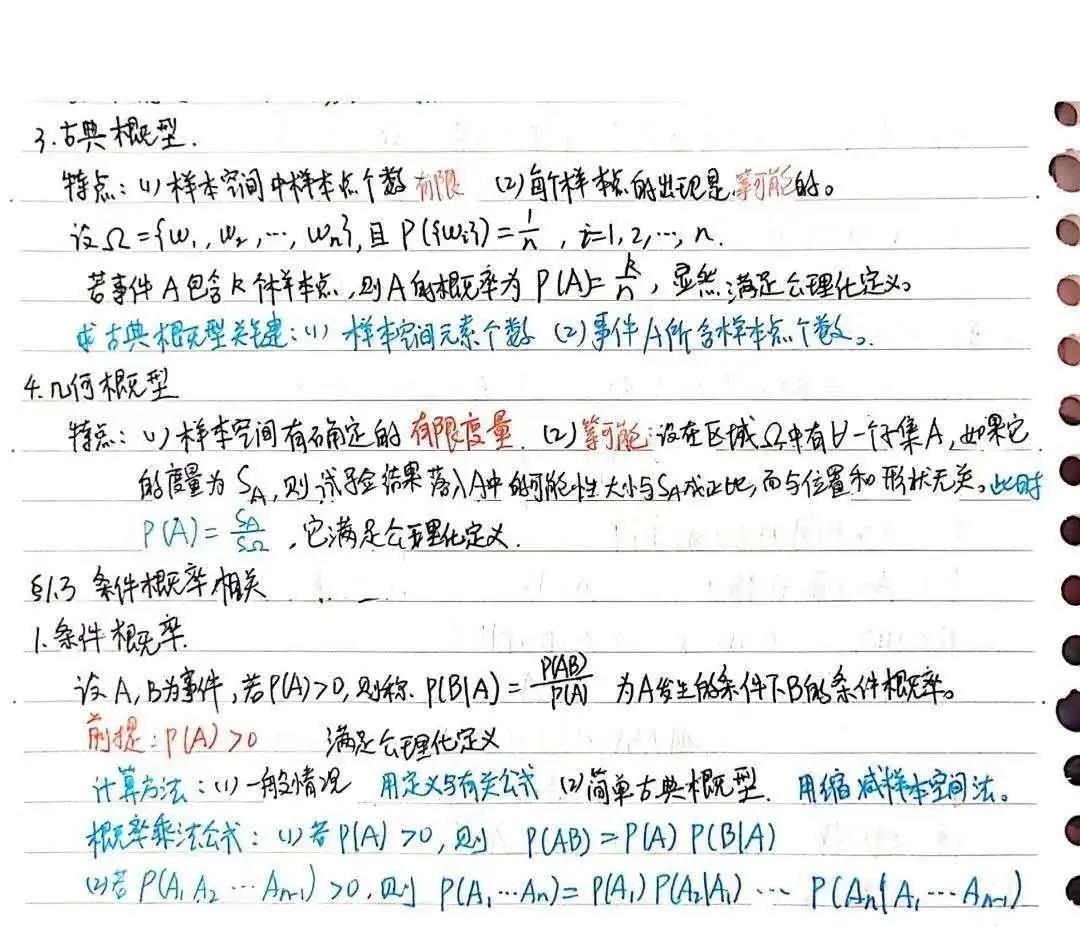 3.古典概型.
特点：(1)样本空间中样本点个数有限 (2)每个样本点的出现是等可能的。
设Ω={ω₁,ω₂,…,ωₙ},且P({ωᵢ})=1/n, i=1,2,…,n.
若事件A包含k个样本点,则A的概率为P(A)=k/n,显然满足公理化定义。
求古典概型关键：(1)样本空间元素个数 (2)事件A所含样本点个数。
4.几何概型
特点：(1)样本空间有确定的有限度量.(2)等可能:设在区域Ω中有∀一个子集A,如果它
的度量为S_A,则试验结果落入A中的可能性大小与S_A成正比,而与位置和形状无关。此时
P(A)=S_A/S_Ω,它满足公理化定义.
§1.3 条件概率相关
1.条件概率.
设A,B为事件,若P(A)>0,则称P(B|A)=P(AB)/P(A) 为A发生的条件下B的条件概率。
前提:P(A)>0 满足公理化定义
计算方法：(1)一般情况 用定义与有关公式 (2)简单古典概型. 用缩减样本空间法。
概率乘法公式：(1)若P(A)>0,则 P(AB)=P(A)P(B|A)
(2)若P(A₁A₂…Aₙ₋₁)>0,则 P(A₁…Aₙ)=P(A₁)P(A₂|A₁)…P(Aₙ|A₁…Aₙ₋₁)